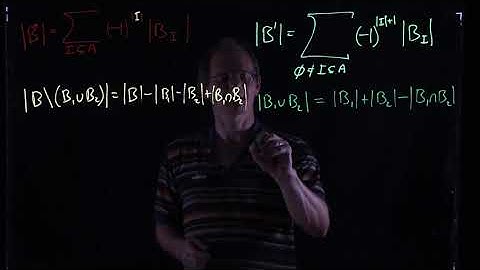 |B̃| = ∑_{I⊆A} (-1)^{|I|} |B_I|
|B'| = ∑_{∅≠I⊆A} (-1)^{|I|+1} |B_I|
|B∖(B₁∪B₂)| = |B|-|B₁|-|B₂|+|B₁∩B₂|
|B₁∪B₂| = |B₁|+|B₂|-|B₁∩B₂|